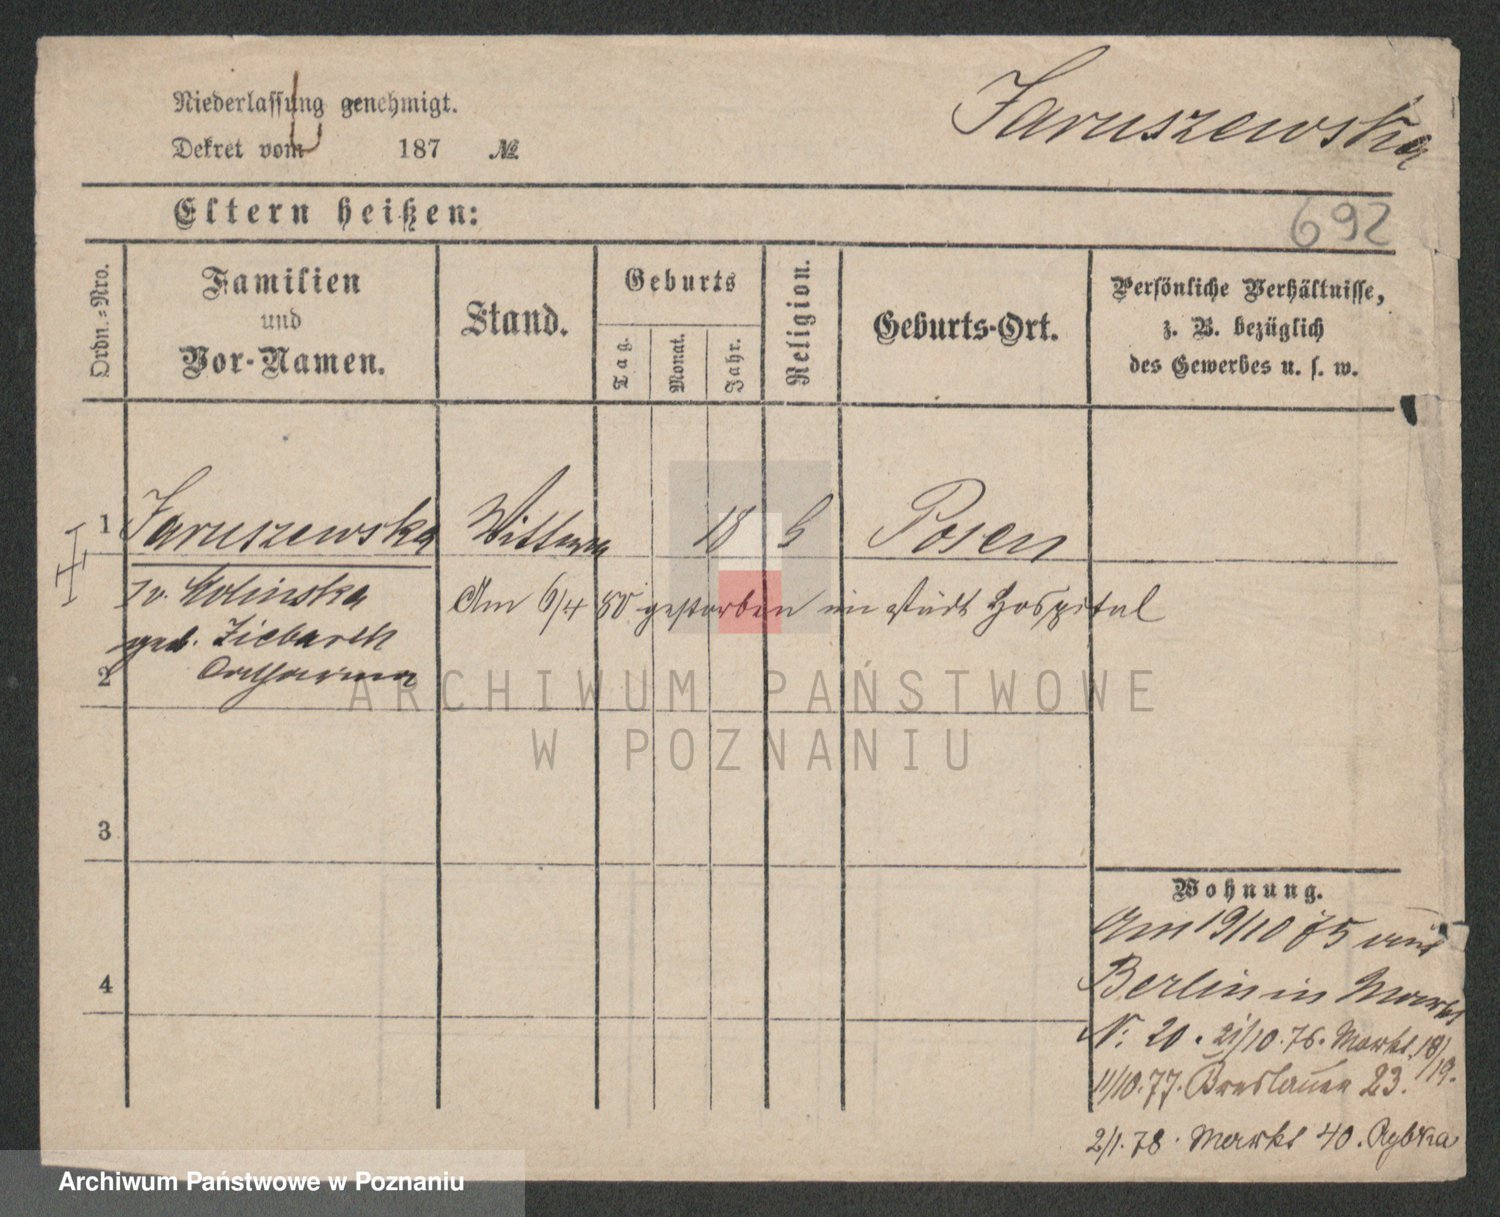 Niederlassung genehmigt.
Jaruszewska
Dekret vom 187 №
Eltern heißen:
692
Ordn.=Nro.
Familien
und
Vor-Namen.
Stand.
Geburts
Tag.
Monat.
Jahr.
Religion.
Geburts-Ort.
Persönliche Verhältnisse,
z. B. bezüglich
des Gewerbes u. s. w.
1 Jaruszewska Wittwe 18 Posen
Iv. Molinska
Am 6/4 80 gestorben im städt Hospital
geb. Ziebarth
2 Catharina
ARCHIWUM PAŃSTWOWE
W POZNANIU
3
4
Wohnung.
Am 19/10 75 aus
Berlin in Markt
N: 20. 21/10.76. Markt 18/19.
11/10.77. Breslauer 23.
2/1.78. Markt 40. Rybka
Archiwum Państwowe w Poznaniu